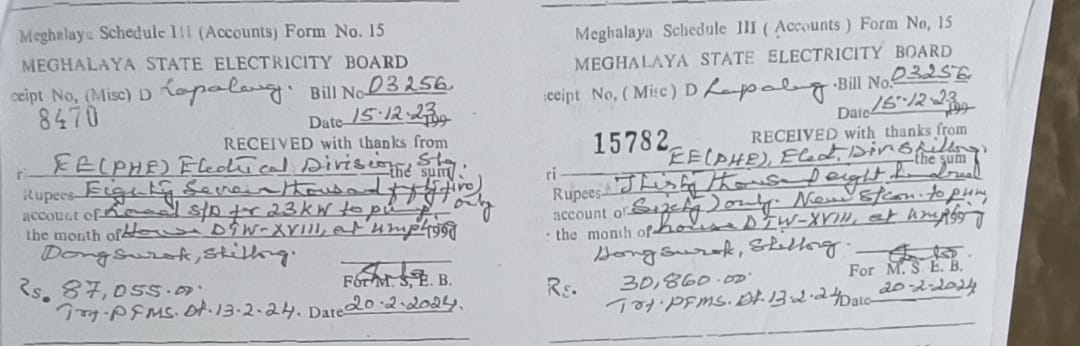 Meghalaya Schedule III (Accounts) Form No. 15
MEGHALAYA STATE ELECTRICITY BOARD
ceipt No, (Misc) D Lapalang. Bill No 03256
8470
Date 15.12.23 199
RECEIVED with thanks from
ri EE(PHE) Electrical Division, Shg.
the sum
Rupees Eighty Seven thousand fifty five) only
account of Load S/D for 23KW to pump
the month of House DTW-XVIII, at Umpling 199
Dongsurok, Shillong.
For M. S, E. B.
Rs. 87,055.00.
Try. PFMS. Dt. 13-2-24. Date 20-2-2024.
Meghalaya Schedule III ( Accounts ) Form No, 15
MEGHALAYA STATE ELECTRICITY BOARD
ceipt No, ( Misc ) D Lapalang Bill No. 03256
Date 15-12-23 199
15782
RECEIVED with thanks from
ri EE(PHE), Elect. Divn Shillong,
the sum
Rupees Thirty thousand eight hundred
account of Sixty) only. New S/con. to pump
the month of house DTW-XVIII, at Umpling 199
Dongsurok, Shillong.
For M. S E. B.
Rs. 30,860.00
Try. PFMS. Dt. 13-2-24 Date 20-2-2024